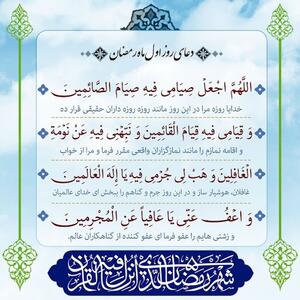 دعای روز اول ماه رمضان
اللَّهُمَّ اجْعَلْ صِیَامِی فِیهِ صِیَامَ الصَّائِمِینَ
خدایا روزه مرا در این روز مانند روزه روزه داران حقیقی قرار ده
وَ قِیَامِی فِیهِ قِیَامَ الْقَائِمِینَ وَ نَبِّهْنِی فِیهِ عَنْ نَوْمَةِ
و اقامه نمازم را مانند نمازگزاران واقعی مقرر فرما و مرا از خواب
الْغَافِلِینَ وَ هَبْ لِی جُرْمِی فِیهِ یَا إِلَهَ الْعَالَمِینَ
غافلان، هوشیار ساز و در این روز جرم و گناهم را ببخش ای خدای عالمیان
وَ اعْفُ عَنِّی یَا عَافِیاً عَنِ الْمُجْرِمِینَ
و زشتی هایم را عفو فرما ای عفو کننده از گناهکاران عالم.
شهر رمضان الذی انزل فیه القرآن